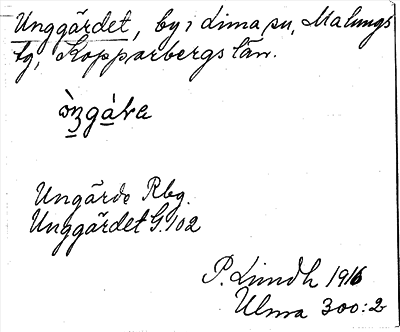 Unggärdet, by i Lima sn, Malungs
tg, Kopparbergs län.
Ungärde Rbg.
Unggärdet G. 102
P. Lindh 1916
Ulma 300:2